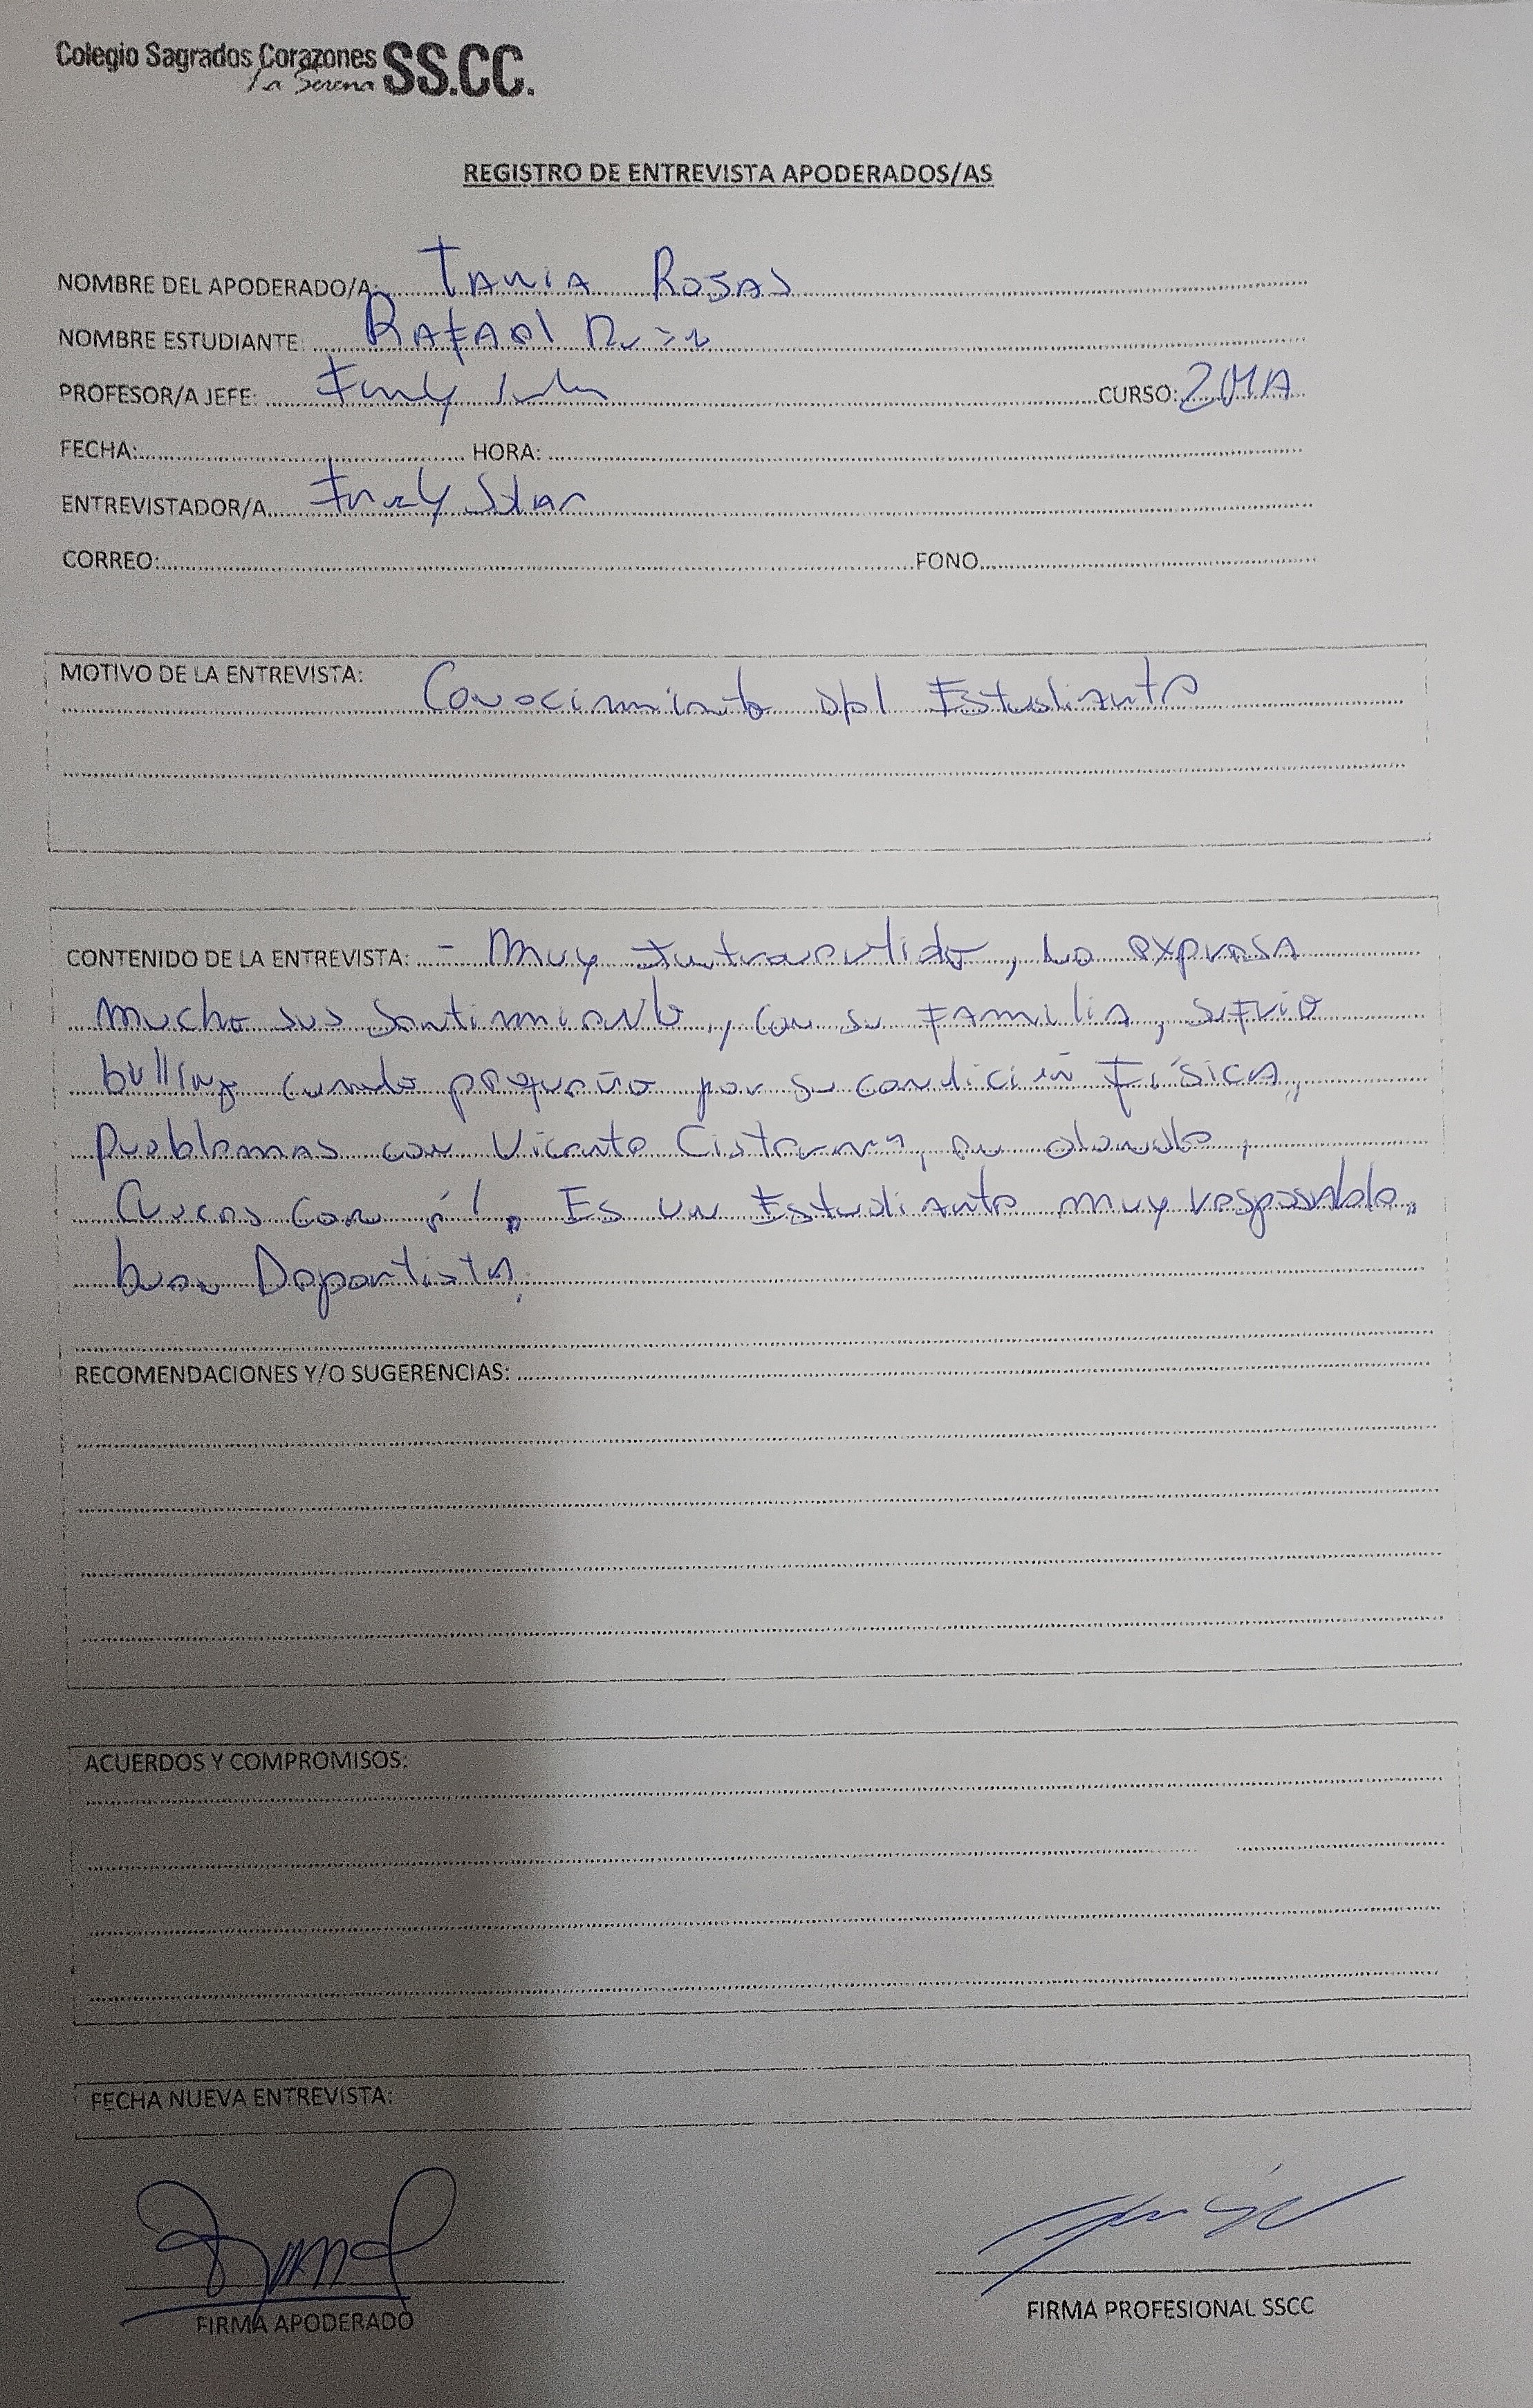 Colegio Sagrados Corazones SS.CC.
La Serena
REGISTRO DE ENTREVISTA APODERADOS/AS
NOMBRE DEL APODERADO/A: Tania Rosas
NOMBRE ESTUDIANTE: Rafael
PROFESOR/A JEFE: CURSO: 2MA
FECHA: HORA:
ENTREVISTADOR/A
CORREO: FONO
MOTIVO DE LA ENTREVISTA: Conocimiento del Estudiante
CONTENIDO DE LA ENTREVISTA: - Muy Introvertido, no expresa
mucho sus sentimiento, con su Familia, sufrio
bulling cuando pequeño por su condición Física,
problemas con Vicente Cisternas, su
con él. Es un Estudiante muy responsable,
buen Deportista.
RECOMENDACIONES Y/O SUGERENCIAS:
ACUERDOS Y COMPROMISOS:
FECHA NUEVA ENTREVISTA:
FIRMA APODERADO
FIRMA PROFESIONAL SSCC